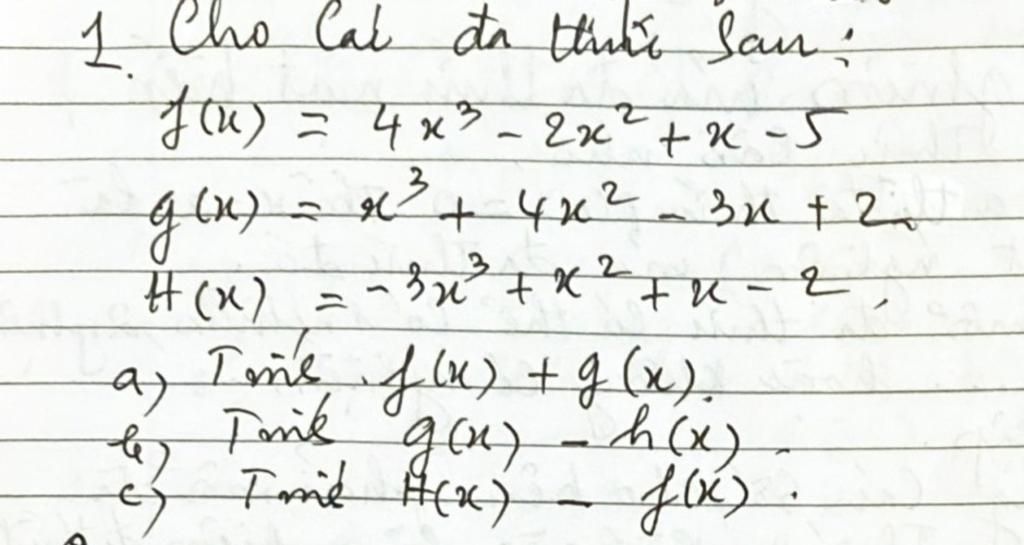 1. Cho Các đa thức sau:
f(x) = 4x³ - 2x² + x - 5
g(x) = x³ + 4x² - 3x + 2.
H(x) = -3x³ + x² + x - 2.
a) Tính f(x) + g(x).
b) Tính g(x) - h(x).
c) Tính H(x) - f(x).